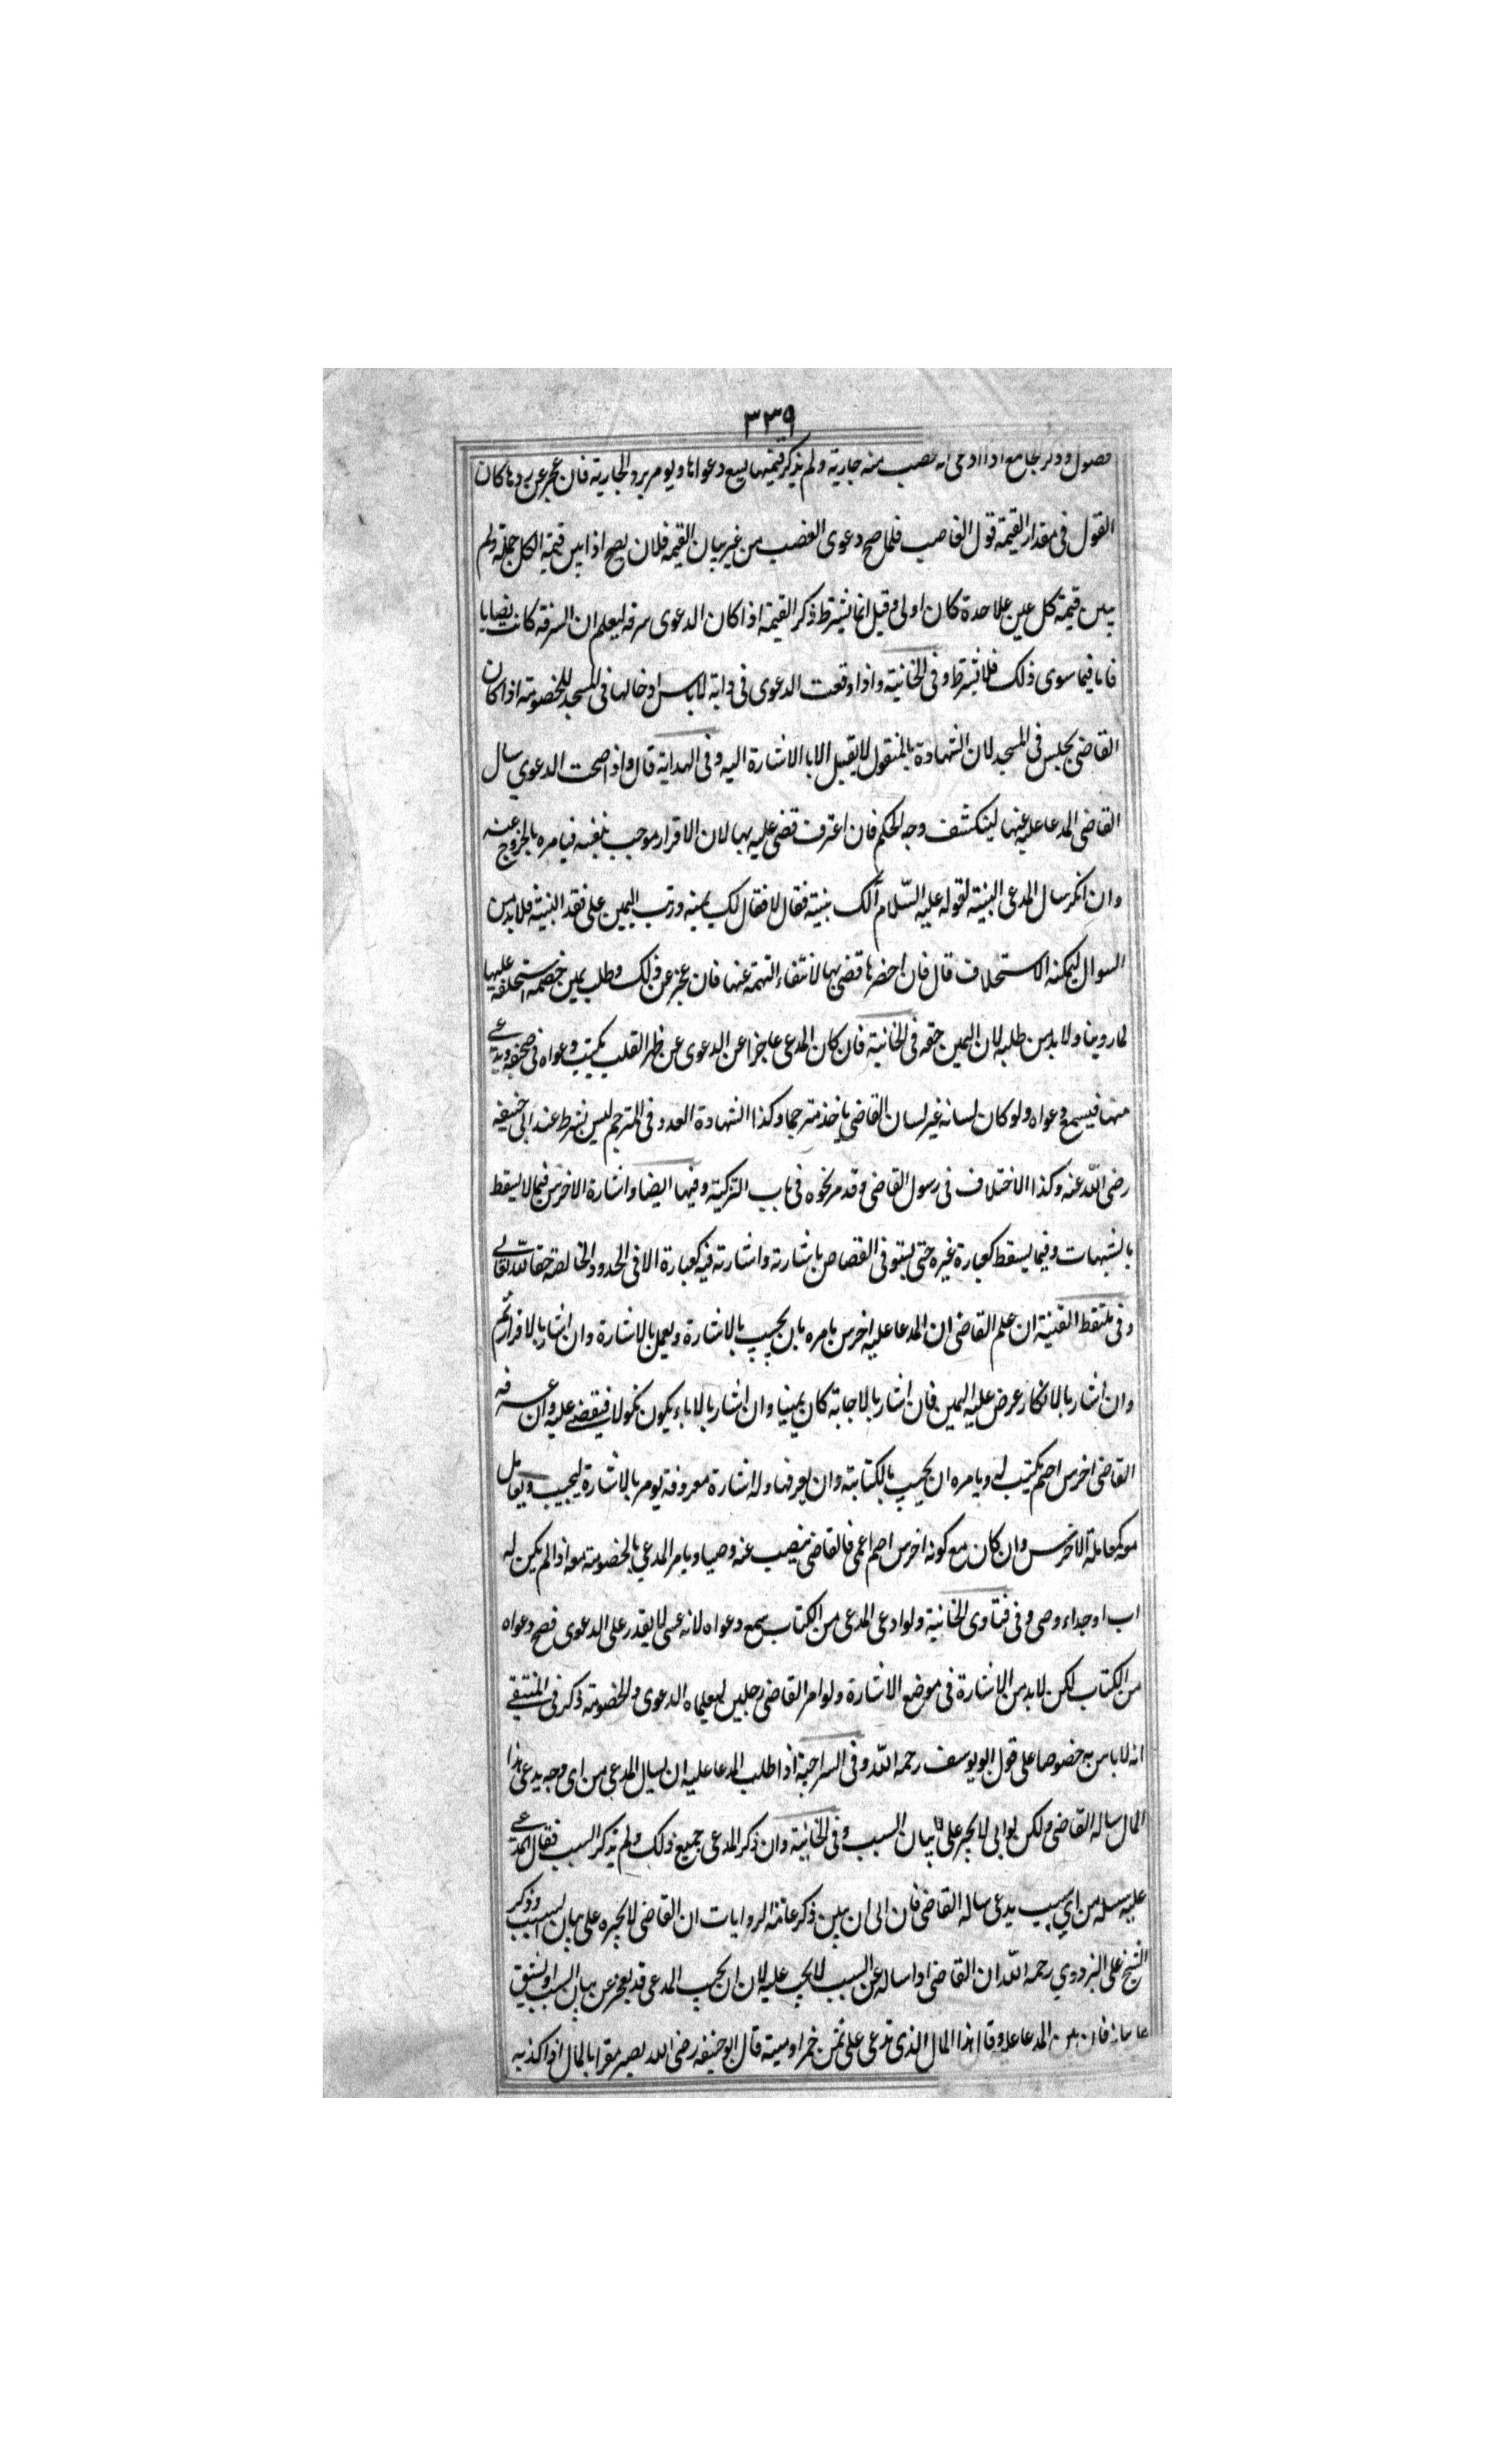 ٣٣٩
فصول وذكر الجامع اذا ادعى انه غصب منه جارية ولم يذكر قيمتها يسمع دعواها ويومر برد الجارية فان عجز عن ردها كان
القول فى مقدار القيمة قول الغاصب فلما صح دعوى الغصب من غير بيان القيمة فلان يصح اذا بين قيمة الكل جملة ولم
يبين قيمة كل عين علاحدة كان اولى وقيل انما يشترط ذكر القيمة اذا كان الدعوى سرقه ليعلم ان السرقه كانت نصابا
فاما فيما سوى ذلك فلا يشترط وفى الخانية واذا وقعت الدعوى فى دابة لا باس ادخالها فى المسجد للخصومة اذا كان
القاضى يجلس فى المسجد لان الشهادة بالمنقول لا يقبل الا بالاشارة اليه وفى الهداية قال واذا صحت الدعوي سال
القاضى المدعا عليه عنها لينكشف وجه الحكم فان اعترف قضى عليه بها لان الاقرار موجب بنفسه فيامره بالخروج عنه
وان انكر سال المدعى البينة لقوله عليه السّلام ألك بينة فقال لا فقال لك يمينه ورتب اليمين على فقد البينة فلا بد من
السوال ليمكنه الاستحلاف قال فان احضرها قضى بها لانتفاء التهمة عنها فان عجز عن ذلك وطلب يمين خصمه استحلفه عليها
لما روينا ولا بد من طلبه لان اليمين حقه فى الخانية فان كان المدعى عاجزا عن الدعوى عن ظهر القلب يكتب دعواه فى صحيفة ويدعى
منها فيسمع دعواه ولو كان لسانه غير لسان القاضى ياخذ مترجما وكذا الشهادة العدد فى المترجم ليس بشرط عند ابى حنيفه
رضى اللّه عنه وكذا الاختلاف فى رسول القاضى وقد مر نحوه فى باب التزكية وفيها ايضا واشارة الاخرس فيما لا يسقط
بالشبهات وفيما يسقط كعبارة غيره حتى يستوفى القصاص باشارته واشارته فيه كعبارة الا فى الحدود الخالصة حقا لله تعالى
وفى ملتقط القنية ان علم القاضى ان المدعا عليه اخرس يامره بان يجيب بالاشارة ويعمل بالاشارة وان اشار بالاقرار تم
وان اشار بالانكار عرض عليه اليمين فان اشار بالاجابة كان يمينا وان اشار بالاباء يكون نكولا فيقضى عليه وان عرفه
القاضى اخرس اصم يكتب له ويامره ان يجيب بالكتابة وان يعرفها وله اشارة معروفة يومر بالاشارة ليجيب ويعامل
معه كمعاملة الاخرس وان كان مع كونه اخرس اصم اعمى فالقاضى ينصب عنه وصيا ويامر المدعي بالخصومة معه اذا لم يكن له
اب او جد او وصى وفى فتاوى الخانية ولو ادعى المدعى من الكتاب يسمع دعواه لانه عسى لا يقدر على الدعوى فصح دعواه
من الكتاب لكن لا بد من الاشارة فى موضع الاشارة ولو امر القاضى رجلين ليعلماه الدعوى والخصومة ذكر فى المنتقى
انه لا باس به خصوصا على قول ابو يوسف رحمه اللّه وفى السراجية اذا طلب المدعا عليه ان يسال المدعى من اى وجه يدعى هذا
المال ساله القاضى ولكن لو ابى لا يجبر على بيان السبب وفى الخانية وان ذكر المدعى جميع ذلك ولم يذكر السبب فقال المدعى
عليه سله من اي سبب يدعى ساله القاضى فان ابى ان يبين ذكر عامة الروايات ان القاضى لا يجبره على بيان السبب وذكر
الشيخ على البزدوي رحمه اللّه ان القاضى اذا ساله عن السبب لا يجب عليه لان ان يجيب المدعى قد يعجز عن بيان السبب او يشق
فان بين المدعا عليه وقال هذا المال الذى تدعى على ثمن خمر او ميتة قال ابو حنيفه رضى الله يصير مقرا بالمال اذا كذبه